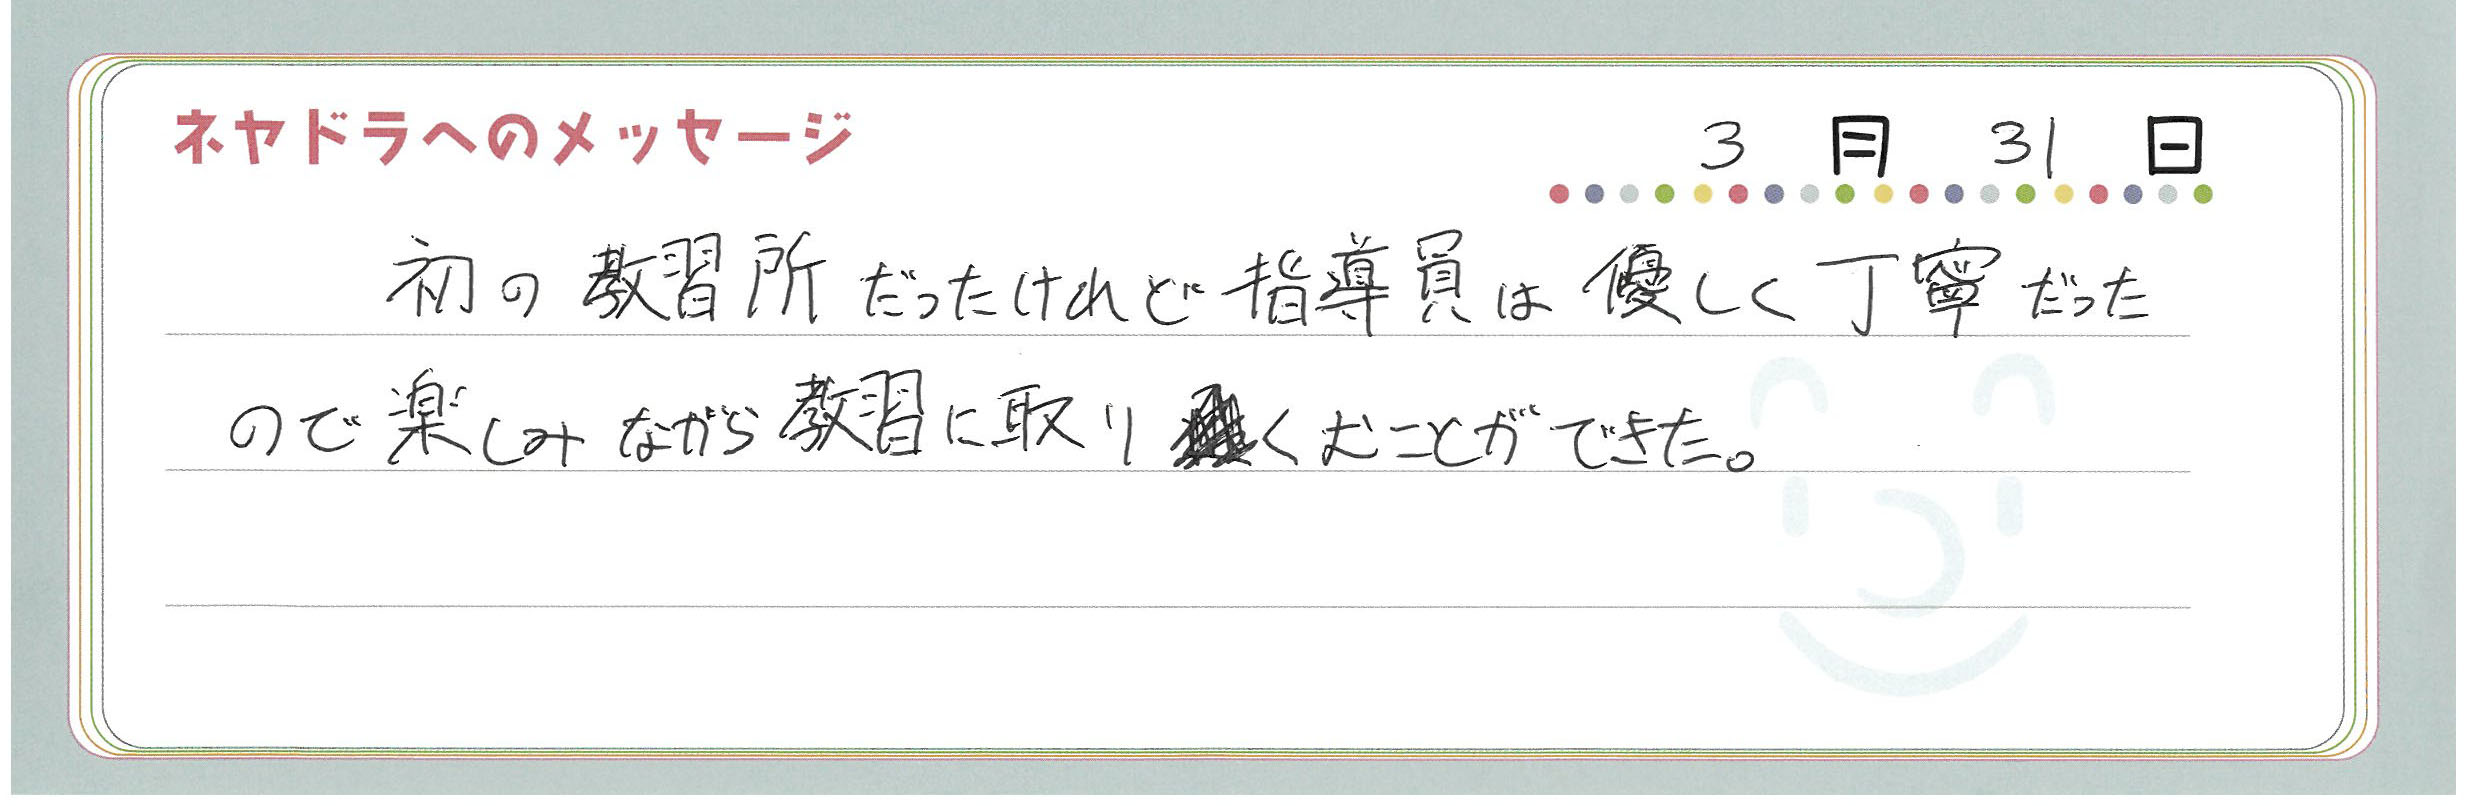 ネヤドラへのメッセージ
3月31日
初の教習所だったけれど指導員は優しく丁寧だった
ので楽しみながら教習に取りくむことができた。